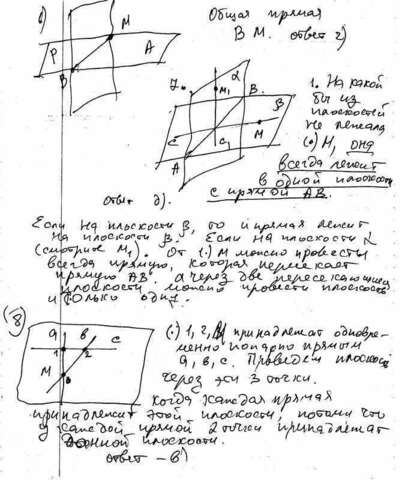 Общая прямая
ВМ. ответ г)
М
Р
А
В
7.
α
М₁
В
β
М
С
С₁
А
1. На какой
бы из
плоскостей
не лежала
(.) М, она
всегда лежит
в одной плоскости
с прямой АВ.
ответ д).
Если на плоскости β, то и прямая лежит
на плоскости β. Если на плоскости α
(смотрите М₁). От (.) М можно провести
всегда прямую, которая пересекает
прямую АВ. а через две пересекающиеся
плоскости можно провести плоскость
и только одну.
8
а в с
1 2
М
3
(.) 1, 2, 3 принадлежат одновре-
менно попарно прямым
а, в, с. Проведем плоскость
через эти 3 точки.
когда каждая прямая
принадлежит этой плоскости, потому что
у каждой прямой 2 точки принадлежат
данной плоскости.
ответ - в)